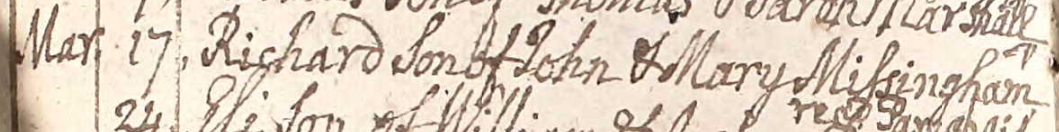 Thomas & Sarah Marshall
Mar. 17. Richard Son of John & Mary Missingham
24. Eli Son of William &